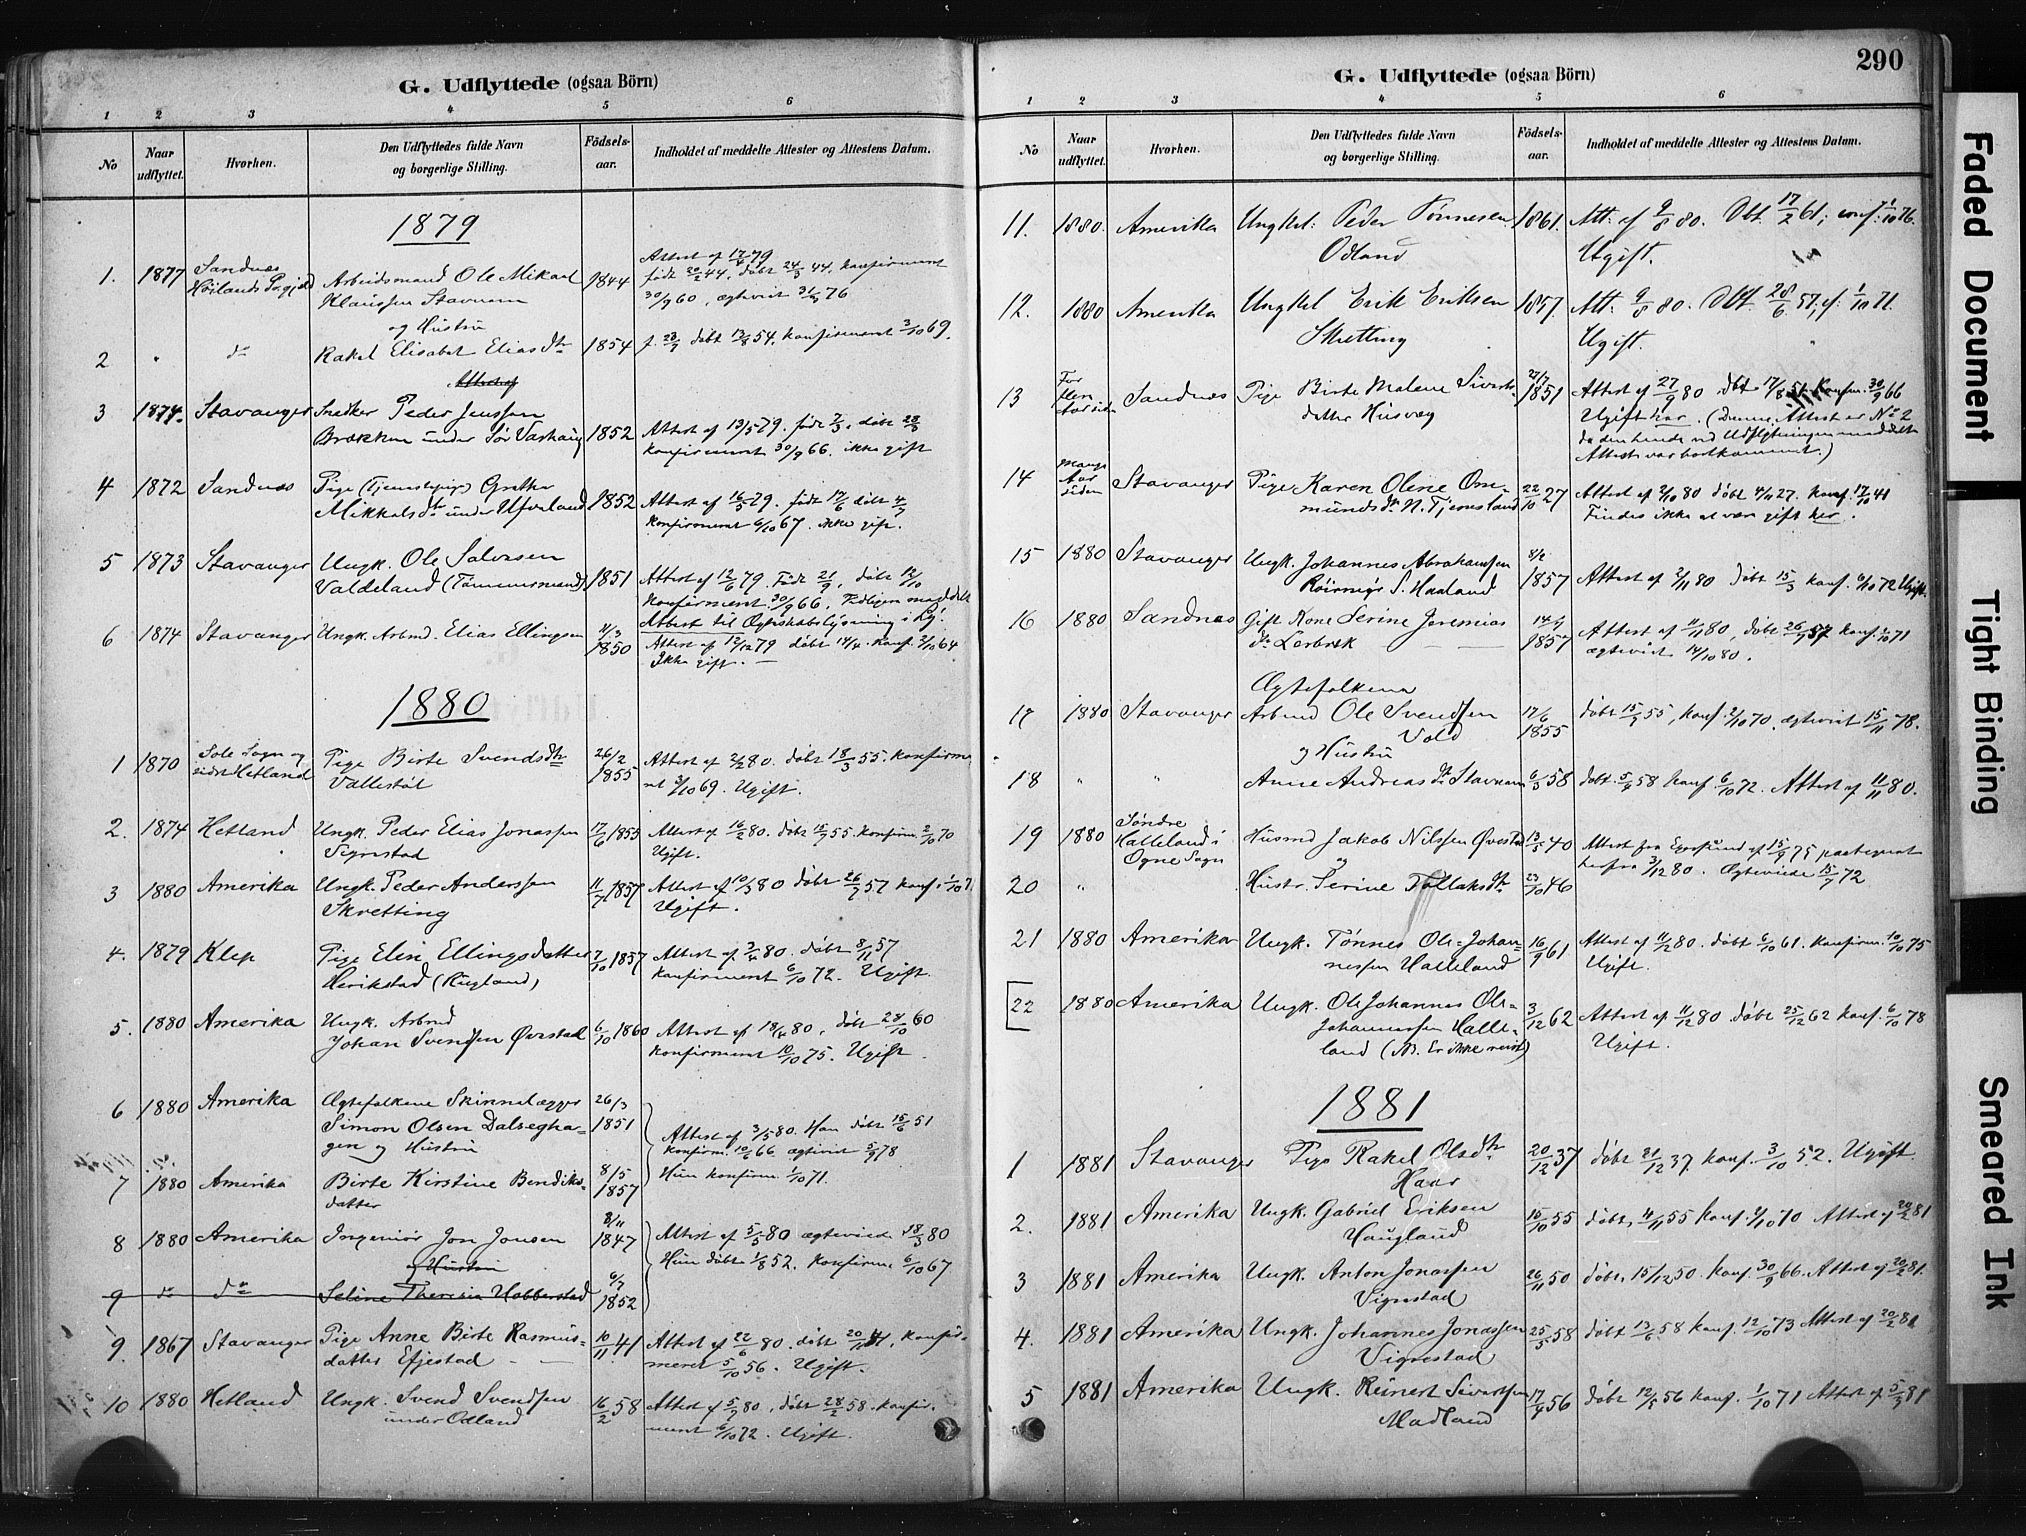 G. Udflyttede (ogsaa Börn)
1 2 3 4 5 6
No
Naar udflyttet.
Hvorhen.
Den Udflyttedes fulde Navn
og borgerlige Stilling.
Födsels-
aar.
Indholdet af meddelte Attester og Attestens Datum.
1879
1. 1877 Sandnæs Arbeidsmand Ole Mikael 1844 Attest af 17/4 79
født 20/2 44, døbt 24/3 44, konfirmeret
Stavnem 30/9 60, ægteviet 31/3 76
og Hustru
2 " do Rakel Elisabet Elias dtr 1854 f. 23/7 døbt 13/8 54, konfirmeret 3/10 69.
3 1874. Stavanger Snedker Peder Jenssen
Brækken under Sør Varhaug 1852 Attest af 13/5 79. født 7/3, døbt 28/3
konfirmeret 30/9 66. ikke gift
4 1872 Sandnæs Pige (Tjenestepige) Grethe
Mikkelsdtr under Ufveland 1852 Attest af 16/5 79. født 17/6 døbt 4/7
konfirmeret 6/10 67. ikke gift.
5 1873 Stavanger Ungk. Ole Salvesen
Valdeland (Tømmermand) 1851 Attest af 12/6 79. Født 21/9, døbt 12/10
konfirmeret 30/9 66. Tidligere meddelt
Attest til Ægteskabslysning i
6 1874 Stavanger Ungk. Arbmd. Elias Ellingsen 4/3 1850 Attest af 12/12 79 døbt 14/4. konf. 2/10 64
Ikke gift. —
1880
1 1870 Sole Sogn og Pige Birte Svendsdtr 26/2 1855 Attest af 2/2 80. døbt 18/3 55. konfirme-
sidst Hetland Vallestøl ret 3/10 69. Ugift.
2. 1874 Hetland Ungk. Peder Elias Jonassen 17/6 1855 Attest af 16/2 80. døbt 15/7 55. konfirm. 2/10 70
Vignestad Ugift.
3 1880 Amerika Ungk. Peder Anderssen 11/7 1857 Attest af 10/3 80 døbt 26/7 57 konf. 1/10 7
Skretting Ugift.
4. 1879 Klep Pige Elin Ellingsdatter 7/10 1857 Attest af 3/4 80. døbt 8/11 57
Herikstad (Hugland) konfirmeret 6/10 72. Ugift.
5. 1880 Amerika Ungk. Arbmd
Johan Svendsen Øvestad 6/10 1860 Attest af 18/4 80. døbt 28/10 60
konfirmeret 10/10 75. Ugift.
6 1880 Amerika Ægtefolkene Skindlægger 26/3
Simon Olsen Dalsegha- 1851 Attest af 3/5 80. Han døbt 15/6 51
gen og Hustru konfirm. 10/6 66 ægteviet 5/9 78
7 1880 Amerika Birte Kirstine Bendiks- 8/5 1857 Hun konfirm. 1/10 71.
datter
8 1880 Amerika Ingeniør Jon Jonsen 8/11 1847 Attest af 5/5 80 ægteviede 18/3 80
og Hustru Hun døbt 1/8 52. konfirm. 6/10 67
9 do do Seline Theresia Hobberstad 6/7 1852
9. 1867 Stavanger Pige Anne Birte Rasmus- 10/11 41 Attest af 22/6 80. døbt 20/11 41, konfir-
datter Efjestad — meret 5/10 56. Ugift.
10 1880 Hetland Ungk. Svend Svendsen 16/2 58 Attest af 5/9 80, døbt 28/2 58. konfir-
under Odland meret 6/10 72. Ugift.
G. Udflyttede (ogsaa Börn)
290
1 2 3 4 5 6
No
Naar udflyttet.
Hvorhen.
Den Udflyttedes fulde Navn
og borgerlige Stilling.
Födsels-
aar.
Indholdet af meddelte Attester og Attestens Datum.
11. 1880. Amerika Ungkl. Peder Tønnesen 1861. Att: af 9/8 80. Døbt 17/2 61; conf: 1/10 76.
Odland Ugift.
12. 1880 Amerika Ungkl Erik Eriksen 1857. Att: 9/8 80. Døbt 28/6 57, cf: 1/10 71.
Skretting Ugift.
13 For flere Aar siden Sandnæs Pige Birte Malene Sivert- 22/7 1851 Attest af 27/9 80 døbt 17/8 51 konfirm. 30/9 66
datter Husveg Ugift her. (Denne Attest er No 2
da den hende ved Udflytningen meddelte
Attest var bortkommet.)
14 Mange Aar siden Stavanger Pige Karen Oline Om- 22/10 27 Attest af 2/10 80 døbt 4/11 27. konf. 17/10 41
mundsdtr N. Tjemsland Findes ikke at være gift her.
15 1880 Stavanger Ungk. Johannes Abrahamsen 8/2
S. Haaland 1857 Attest af 2/11 80 døbt 15/3 konf. 6/10 72 Ugift.
16 1880 Sandnæs Gift Kone Serine Jeremias 14/9 1857 Attest af 11/11 80, døbt 26/9 57 konf. 1/10 71
dtr Lerbrek — — ægteviet 14/10 80.
Ægtefolkene
17 1880 Stavanger Arbmd Ole Svendsen 17/6 1855 døbt 15/7 55, konf. 2/10 70, ægteviet 15/11 78.
Vold
og Hustru
18 " " Anne Andreasdtr Stavnem 6/3 58 døbt 5/4 58 konf. 6/10 72. Attest af 11/11 80.
19 1880 Søndre Husmd Jakob Nilssen Øvestad 13/5 40 Attest fra Egersund af 15/9 75 paategnet
Halleland i og herfra 3/12 80. Ægteviede 15/7 72
Ogne Sogn
20 " Hustr. Serine Tollaksdtr 23/10 46
21 1880 Amerika Ungk. Tønnes Ole Johan- 16/9 61 Attest af 11/12 80. døbt 6/10 61. konfirm. 10/10 75
nessen Halleland Ugift.
22 1880 Amerika Ungk. Ole Johannes Ole- 3/12 62 Attest af 11/12 80. døbt 25/12 62 konf. 6/10 78
Johannessen Halle- Ugift.
land (NB. Er ikke reist)
1881
1 1881 Stavanger Pige Rakel Olsdtr 20/12 37 døbt 31/12 37 konf. 3/10 52. Ugift.
Haar
2. 1881 Amerika Ungk. Gabriel Eriksen 15/10 55 døbt 4/11 55 konf. 2/10 70 Attest af 20/2 81
Haugland
3 1881 Amerika Ungk. Anton Jonassen 26/11 50 døbt 15/12 50. konf. 30/9 66. Attest af 20/2 81.
Vignestad
4. 1881 Amerika Ungk. Johannes Jonassen 25/5 58 døbt 13/6 58 konf. 12/10 73 Attest af 20/2 81
Vignestad
5 1881 Amerika Ungk. Reinert Sivertsen 17/4 56 døbt 12/5 56 konf. 1/10 71 Attest af 5/3 81
Madland
Faded Document
Tight Binding
Smeared Ink